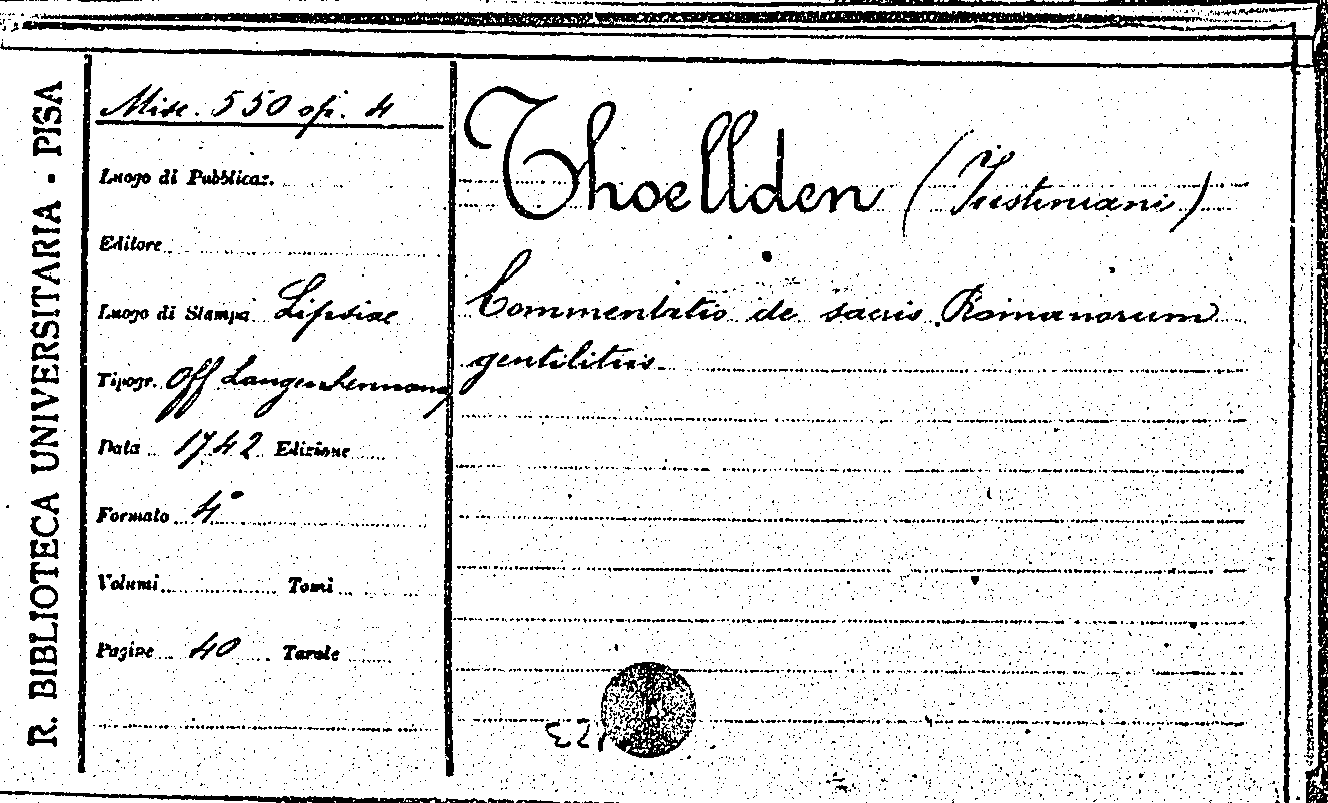 R. BIBLIOTECA UNIVERSITARIA - PISA
Misc. 550 op. 4
Luogo di Pubblicaz.
Editore
Luogo di Stampa Lipsiae
Tipogr. Off Langenhemiana
Data 1742 Edizione
Formato 4°
Volumi Tomi
Pagine 40 Tavole
Thoellden (Iustiniani)
Commentatio de sacris Romanorum
gentilitiis.